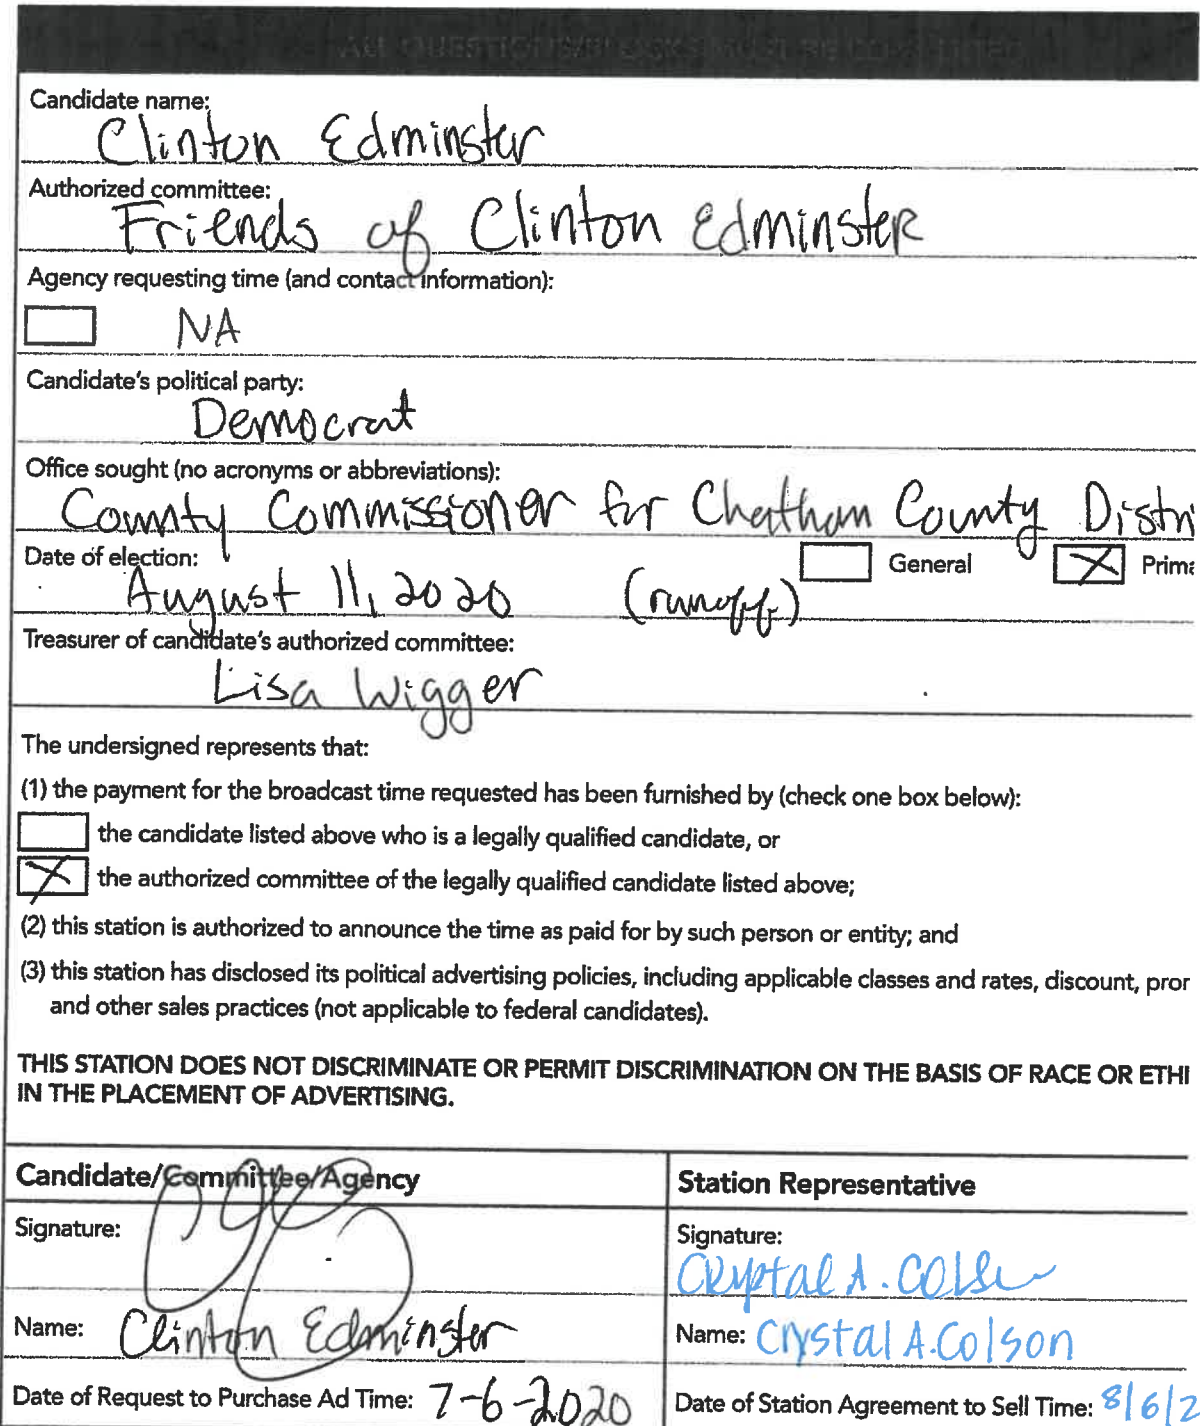 ALL QUESTIONS/BLOCKS MUST BE COMPLETED
Candidate name:
Clinton Edminster
Authorized committee:
Friends of Clinton Edminster
Agency requesting time (and contact information):
NA
Candidate's political party:
Democrat
Office sought (no acronyms or abbreviations):
County Commissioner for Chatham County Distri
Date of election:
August 11, 2020 (runoff) General Prima
Treasurer of candidate's authorized committee:
Lisa Wigger
The undersigned represents that:
(1) the payment for the broadcast time requested has been furnished by (check one box below):
the candidate listed above who is a legally qualified candidate, or
the authorized committee of the legally qualified candidate listed above;
(2) this station is authorized to announce the time as paid for by such person or entity; and
(3) this station has disclosed its political advertising policies, including applicable classes and rates, discount, pror
and other sales practices (not applicable to federal candidates).
THIS STATION DOES NOT DISCRIMINATE OR PERMIT DISCRIMINATION ON THE BASIS OF RACE OR ETHI
IN THE PLACEMENT OF ADVERTISING.
Candidate/Committee/Agency
Signature:
Name: Clinton Edminster
Date of Request to Purchase Ad Time: 7-6-2020
Station Representative
Signature:
Crystal A. Colson
Name: Crystal A. Colson
Date of Station Agreement to Sell Time: 8/6/2